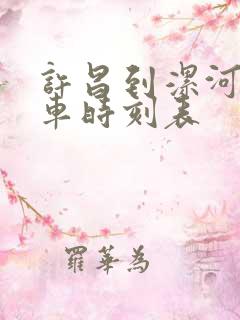 許昌到漯河
車時刻表
羅華為